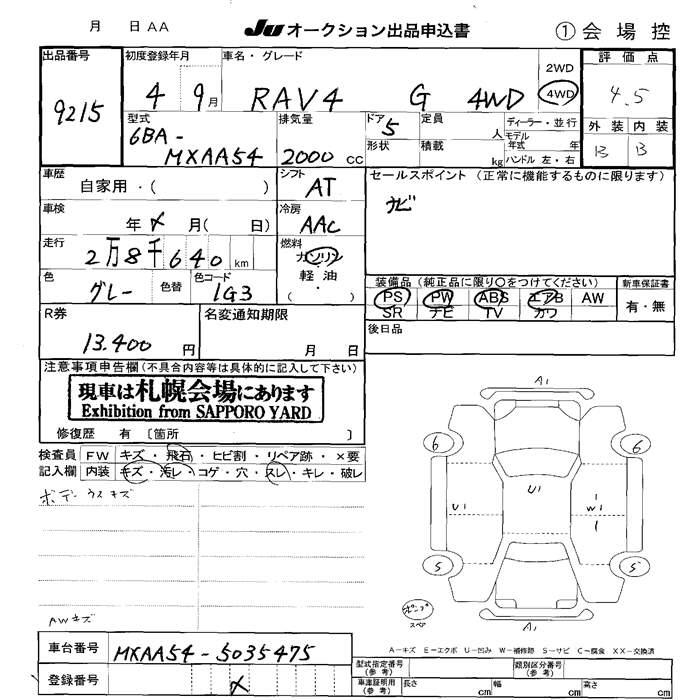 月 日 AA JU オークション出品申込書 ① 会場控
出品番号 初度登録年月 車名・グレード 2WD 評価点
9215 4 9月 RAV4 G 4WD 4WD 4.5
型式 排気量 ドア 5 定員 人 ディーラー・並行 外装 内装
6BA-MXAA54 2000cc 形状 積載 kg モデル年式 年 ハンドル 左・右 B B
車歴 シフト セールスポイント (正常に機能するものに限ります)
自家用・( ) AT ナビ
車検 年 × 月( 日) 冷房 AAC
走行 2万8千640km 燃料 ガソリン
軽油
( ・ )
色 グレー 色替 色コード 1G3
装備品 (純正品に限り○をつけてください) 新車保証書
PS PW ABS エアB AW 有・無
SR ナビ TV カワ
R券 13.400円 名変通知期限 月 日 後日品
注意事項申告欄 (不具合内容等は具体的に記入して下さい)
現車は札幌会場にあります
Exhibition from SAPPORO YARD
修復歴 有 〔箇所 〕
検査員 FW キズ・飛石・ヒビ割・リペア跡・×要
記入欄 内装 キズ・汚レ・コゲ・穴・スレ・キレ・破レ
ボデーウスキズ
AWキズ
A1
6 6
U1 U1 W1
5 5
スペア A1
A-キズ E-エクボ U-凹み W-補修跡 S-サビ C-腐食 XX-交換済
車台番号 MXAA54-5035475
型式指定番号(参考) 類別区分番号(参考)
登録番号 × 車庫証明用(参考) 長さ cm 幅 cm 高さ cm